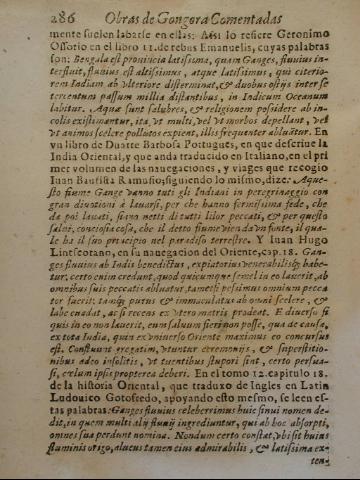 286 Obras de Gongora Comentadas
mente suelen labarse en ellas: Assi lo refiere Geronimo
Ossorio en el libro 11. de rebus Emanuelis, cuyas palabras
son: Bengala est provincia latissima, quam Ganges, fluvius in-
terfluit, fluvius est altissimus, atque latissimus, qui citerio-
rem Indiam ab ulteriore disterminat, & duobus ostijs inter se
tercentum passum millia distantibus, in Indicum Oceanum
labitur. Aqua sunt salubres, & religionem possidere ab in-
colis existimantur, ita, ut multi, vel ut morbos depellant, vel
ut animos scelere pollutos expient, illis frequenter abluātur. En
vn libro de Duarte Barbosa Portugues, en que descriue la
India Oriental, y que anda traducido en Italiano, en el pri
mer volumen de las nauegaciones, y viages que recogio
Iuan Bautista Ramusio, siguiendo lo mismo, dize: Aque-
sto fiume Gange vanno tuti gli Indiani in peregrinaggio con
gran divotioni à lavarsi, per che hanno fermissima fede, che
da poi lavati, siano netti di tutti lilor peccati, & per questo
salvi, conciosia cosa, che il detto fiume vien da vn fonte, il qua-
le ha il suo principio nel paradiso terrestre. Y Iuan Hugo
Lintscotano, en su nauegacion del Oriente, cap. 18. Gan-
ges fluvius ab Indis benedictus, expiatorius venerabilisq; habe-
tur, certo enim credunt, quod quicunque semel in eo laverit, ab
omnibus suis peccatis abluatur, tametsi pessimus omnium pecca
tor fuerit: tamq; purus & immaculatus ab omni scelere, &
labe evadat, ac si recens ex utero matris prodeat. E diverso si
quis in eo non laverit, eum salvum fieri non posse, qua de causa,
ex tota India, quin ex universo Oriente maximus eo concursus
est. Confluunt eregatim, utuntur ceremonijs, & superstitio-
nibus adeo insolitis, ut tuentibus stupori sint, certo persua-
si, cælum ipsis propterea deberi. En el tomo 12. capitulo 18.
de la historia Oriental, que traduxo de Ingles en Latin
Ludouico Gotofredo, apoyando esto mesmo, se leen es-
tas palabras: Ganges fluvius celeberrimus huic sinui nomen de-
dit, in quem multi alij fluvij ingrediuntur, qui ab hoc absorpti,
omnes sua perdunt nomina. Nondum certo constat, ubi sit huius
fluminis origo, alveus tamen eius admirabilis, & latissima ex-
ten-